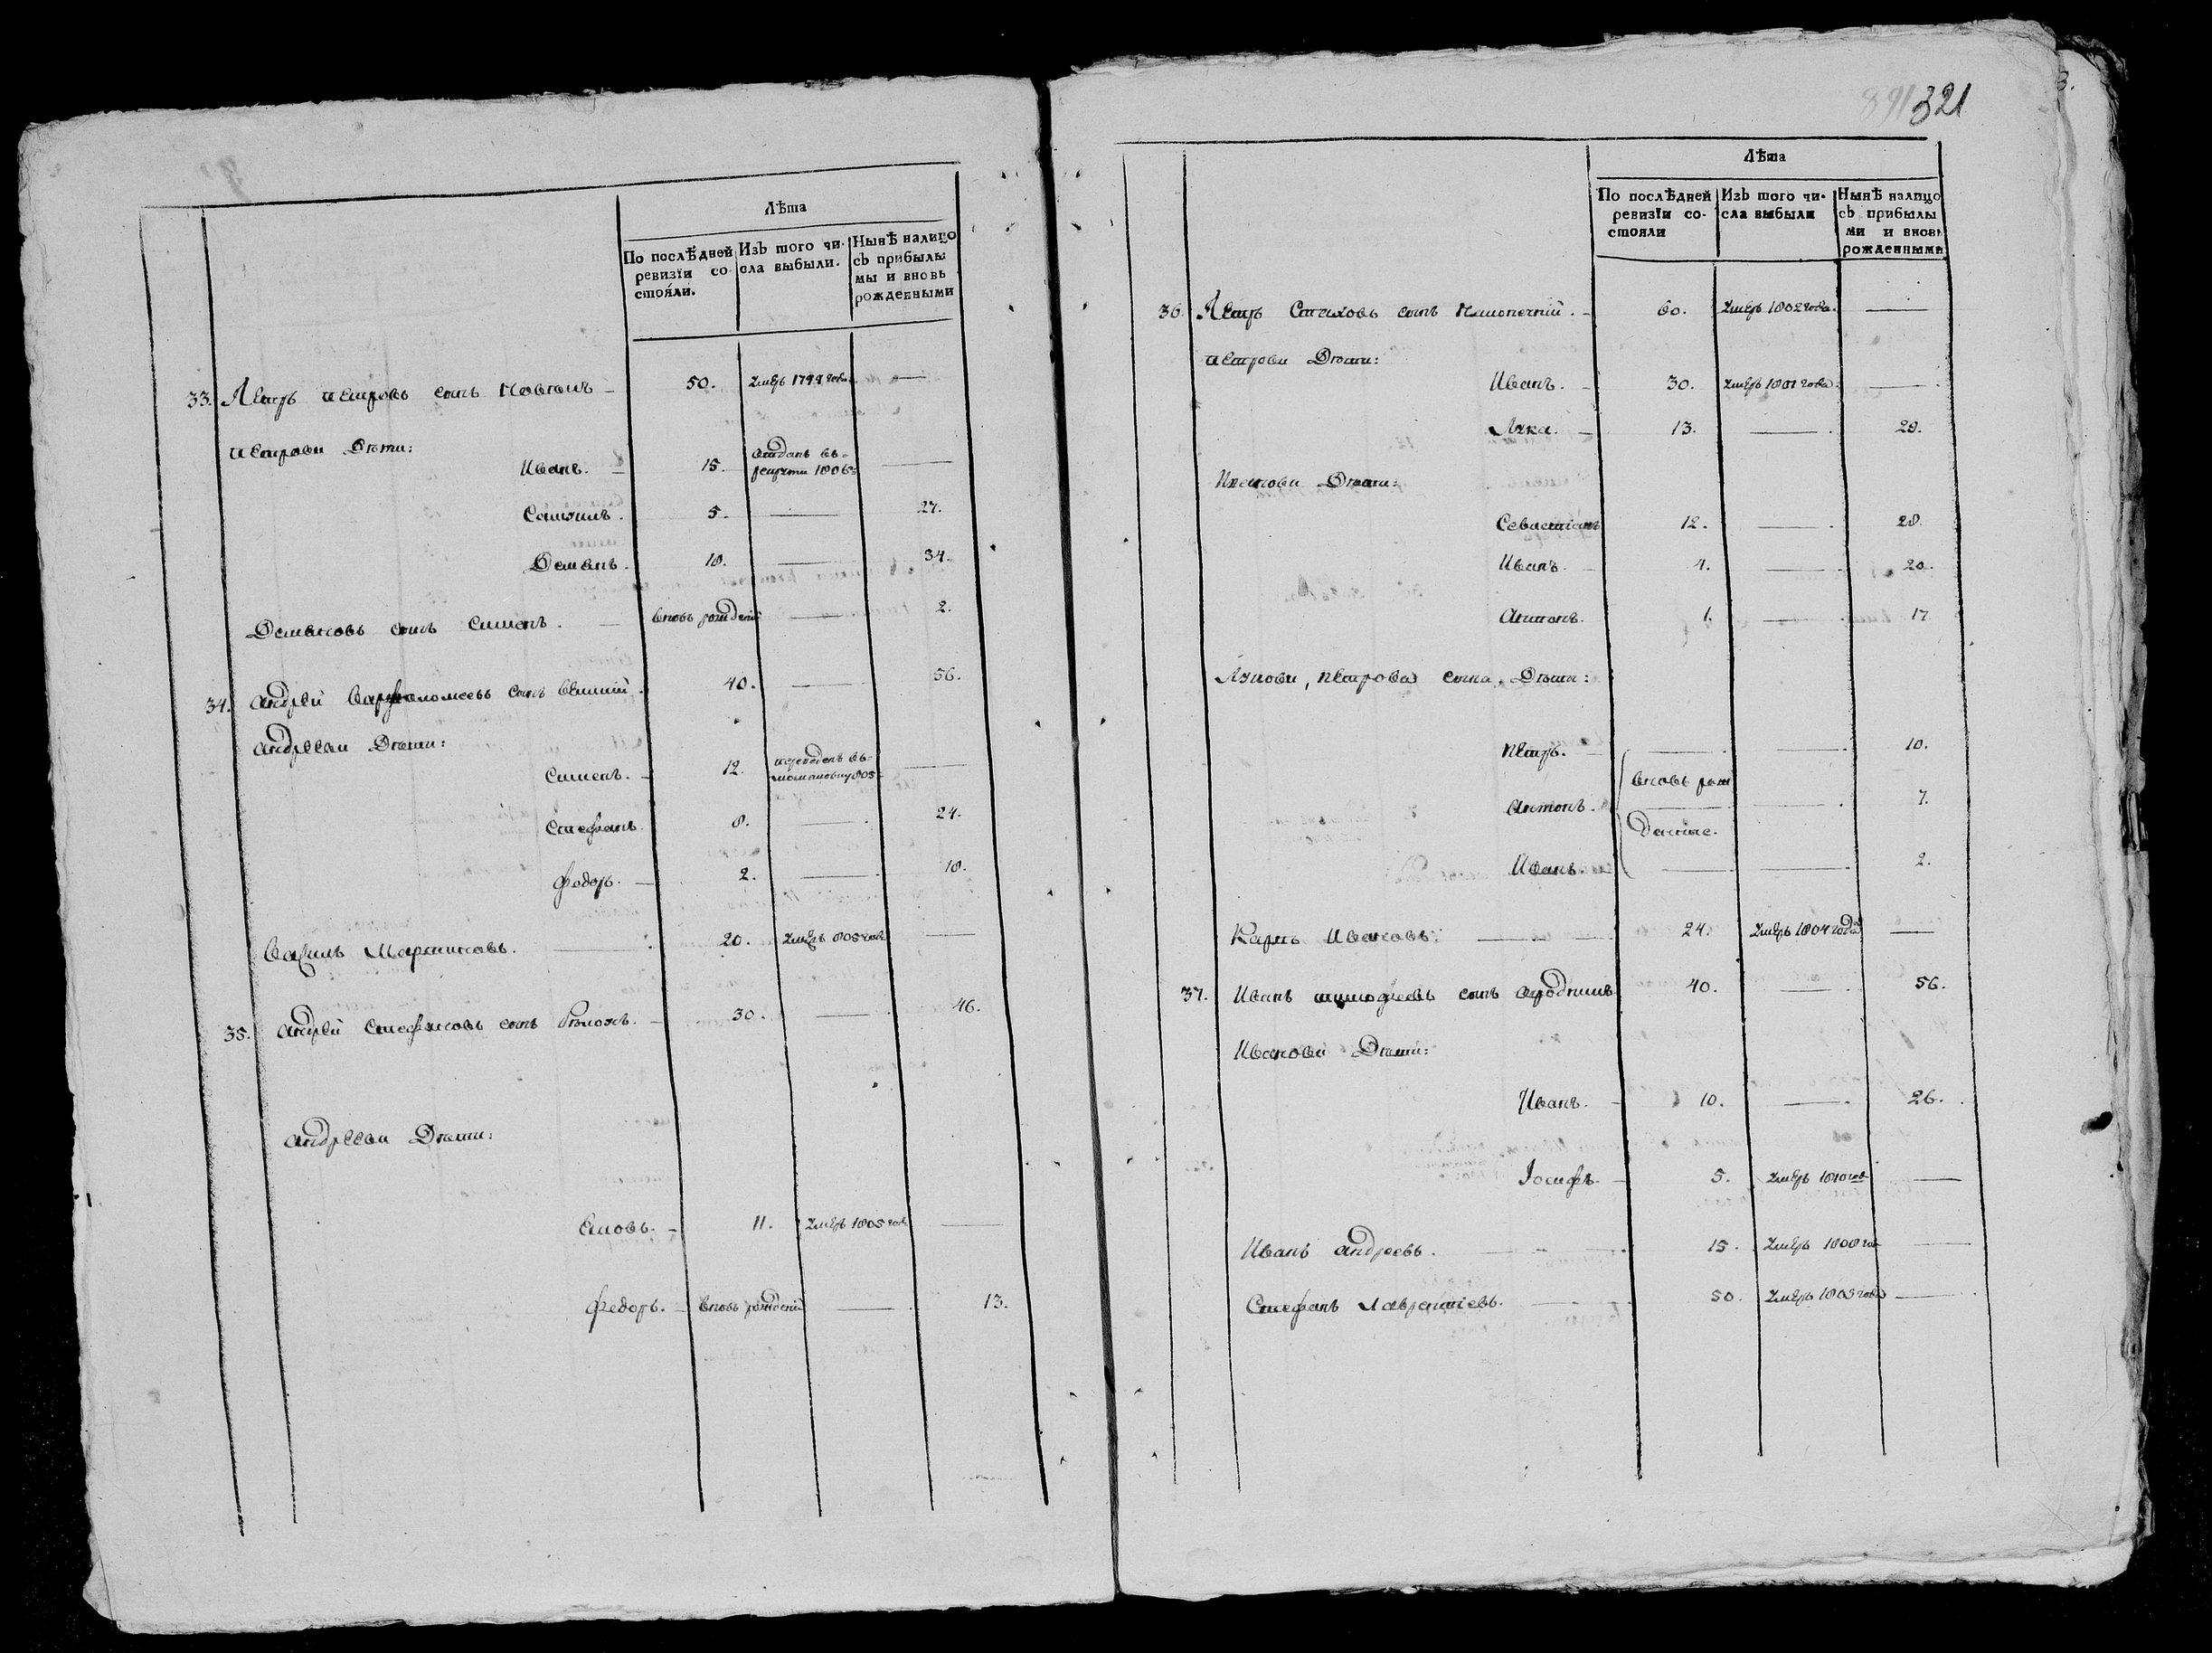 Лѣта
По послѣдней ревизїи состояли.
Изъ того числа выбыли.
Нынѣ налицо съ прибылымы и вновь рожденными
33. Петръ Петровъ сынъ 50. умеръ 1799 года —
Петрови Дѣти:
Иванъ. — 15. отданъ въ рекруты 1806 —
Самуилъ. 5. — 27.
Демянъ. 18. — 34.
Демяновъ сынъ Симонъ. — вновь рожденый — 2.
34. Андрей Варфоломеевъ сынъ 40. — 56.
Андрееви Дѣти:
Симонъ. — 12. 1805 —
Стефанъ. 8. — 24.
Федоръ. — 2. — 18.
Василь Мартиновъ. — 20. умеръ 805 года —
35. Андрей Стефановъ сынъ 30. — 46.
Андрееви Дѣти:
Яковъ. — 11. умеръ 1805 года —
Федоръ. — вновь рожденый — 13.
891 321
3.
Лѣта
По послѣдней ревизїи состояли
Изъ того числа выбыли
Нынѣ налицо съ прибылыми и вновь рожденными
36. Петръ сынъ 60. умеръ 1802 года. —
Петрови Дѣти:
Иванъ. — 30. умеръ 1801 года. —
Лука. — 13. — 29.
Иванови Дѣти:
Севастіанъ 12. — 28.
Иванъ. — 4. — 20.
Антонъ. 1. — 17
Лукови, Петрова сына, Дѣти:
Петръ. — — 10.
вновь рож
Антонъ. — — 7.
денные.
Иванъ. — — 2.
Карпъ Ивановъ. — 24. умеръ 1804 года —
37. Иванъ Тимофѣевъ сынъ 40. — 56.
Иванови Дѣти:
Иванъ. — 10. — 26.
Іосифъ. — 5. умеръ 1810 года —
Иванъ Андреевъ. — 15. умеръ 1808 года —
Стефанъ Лаврентіевъ. — 50. умеръ 1803 года —